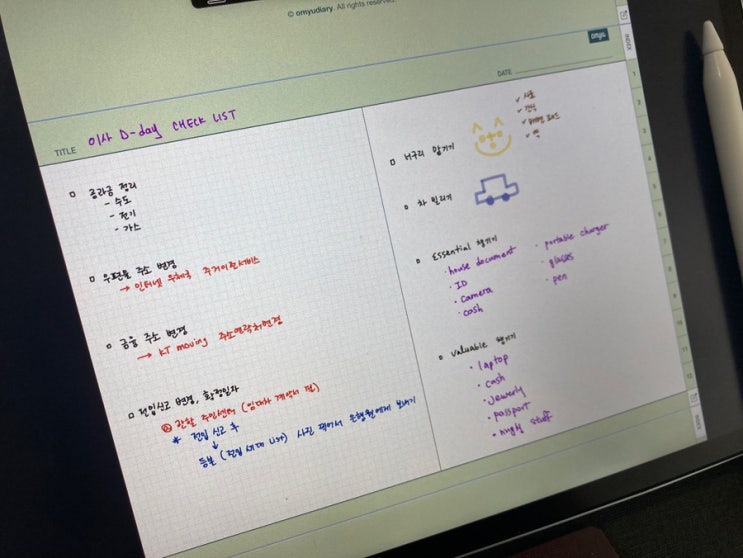 © omyudiary. All rights reserved.
omyu
INDEX
DATE
TITLE 이사 D-day CHECK LIST
공과금 정리
- 수도
- 전기
- 가스
우편물 주소 변경
→ 인터넷 우체국 주거이전서비스
금융 주소 변경
→ KT moving 주소연락처변경
전입신고 변경, 확정일자
관할 주민센터 (임대차 계약서 必)
* 전입 신고 후
↓
등본 (전입 세대 나와) 사진 찍어서 은행원에게 보내기
✓ 사료
✓ 간식
✓ 배변 패드
너구리 맡기기
차 빌리기
Essential 챙기기
· house document
· ID
· camera
· cash
· portable charger
· glasses
· pen
valuable 챙기기
· laptop
· cash
· jewerly
· passport
stuff
1
2
3
4
5
6
7
8
9
10
11
12